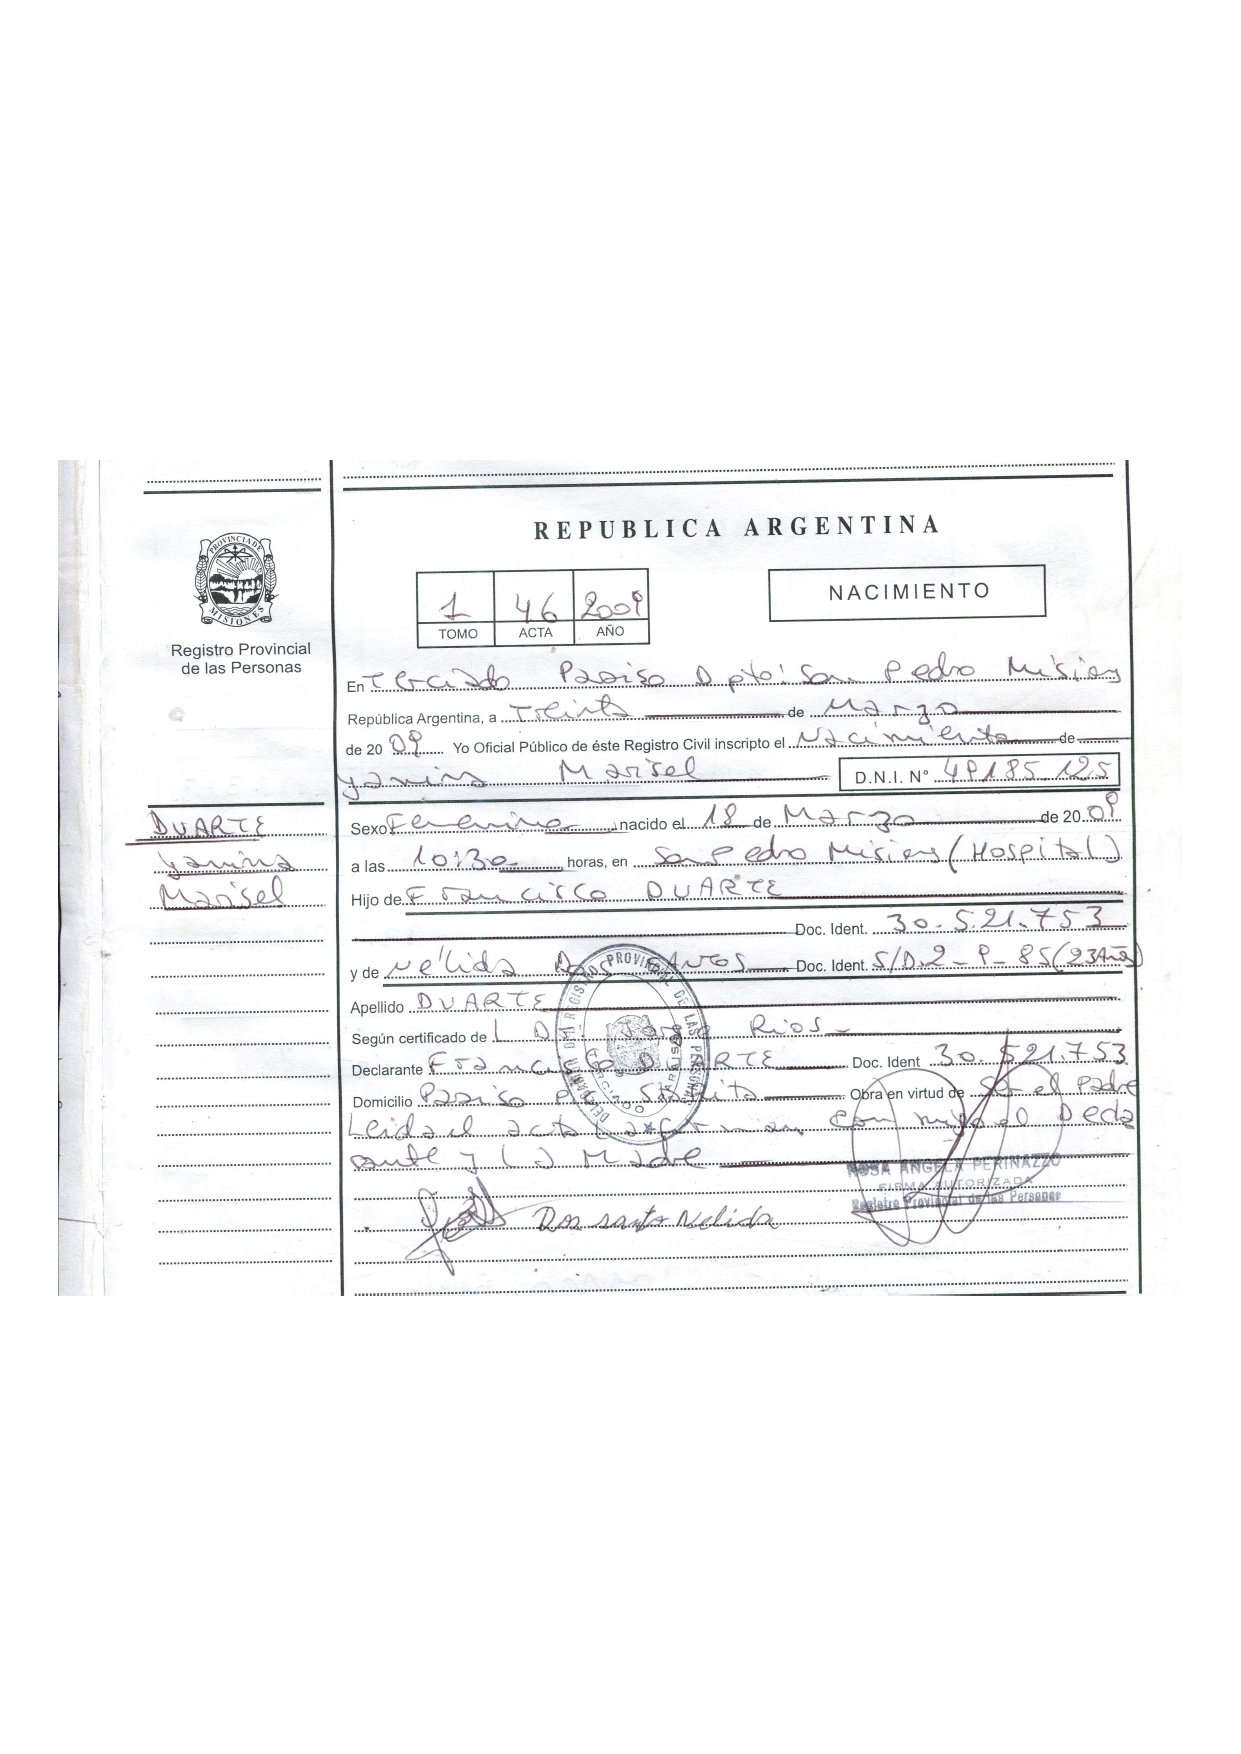 REPUBLICA ARGENTINA
PROVINCIA DE MISIONES
Registro Provincial
de las Personas
1 46 2009
TOMO ACTA AÑO
NACIMIENTO
En Terciado Paraiso Dpto: San Pedro Misiones
República Argentina, a Treinta de Marzo
de 20 09 Yo Oficial Público de éste Registro Civil inscripto el Nacimiento de
Yanina Marisel D.N.I. N° 49185125
DUARTE
Yanina
Marisel
Sexo Femenino nacido el 18 de Marzo de 20 09
a las 10:30 horas, en San Pedro Misiones (Hospital)
Hijo de Francisco DUARTE
Doc. Ident. 30.521.753
y de Nélida Dos Santos Doc. Ident. S/D.2-9-85 (23 Años)
Apellido DUARTE
Según certificado de L. D. Jorge Rios
Declarante Francisco DUARTE Doc. Ident 30.521.753
Domicilio Paraiso Obra en virtud de Ser el Padre
Leida el acta la firman conmigo el Decla
rante y la Madre
DELEGACION DEL REGISTRO PROVINCIAL DE LAS PERSONAS
TERCIADO PARAISO
ROSA ANGELA PERINAZZO
FIRMA AUTORIZADA
Registro Provincial de las Personas
Dos santo Nelida